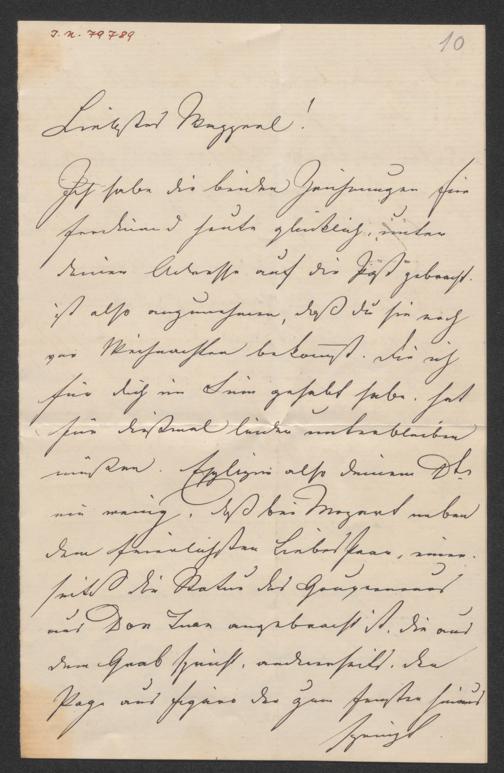 J. N. 79789
10
Liebster Weyprecht!
Ich habe die beiden Zeichnungen für
Ferdinand heute glücklich, unter
deiner Adresse auf die Post gebracht.
ist also anzunehmen, daß du sie noch
vor Weihnachten bekommst. Die ich
für dich im Sinn gehabt habe. hat
für diesmal leider unterbleiben
müssen. also deinem
ein wenig, daß bei Mozart neben
dem feierlichsten Liebespaar, einer-
seits die Statue des Gouverneurs
aus Don Juan angebracht ist. die aus
dem Grab spricht. anderseits. der
Page aus Figaro der zum Fenster hinaus
springt.